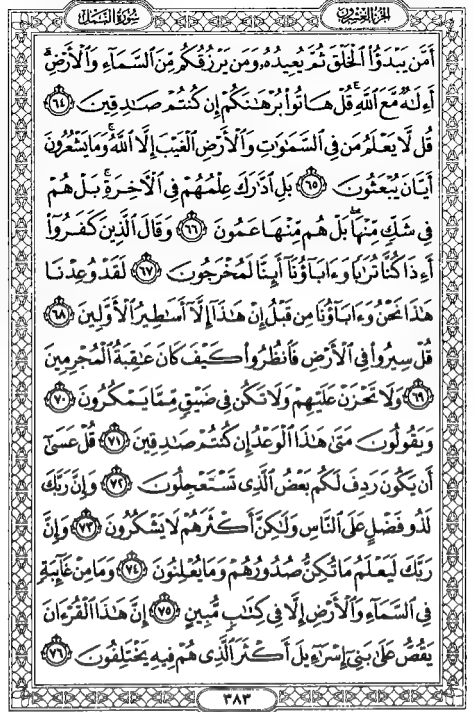 الجُزءُ العِشْرُون
سُورَةُ النَّمْلِ
أَمَّن يَبْدَؤُا۟ ٱلْخَلْقَ ثُمَّ يُعِيدُهُۥ وَمَن يَرْزُقُكُم مِّنَ ٱلسَّمَآءِ وَٱلْأَرْضِ ۗ
أَءِلَٰهٌ مَّعَ ٱللَّهِ ۚ قُلْ هَاتُوا۟ بُرْهَٰنَكُمْ إِن كُنتُمْ صَٰدِقِينَ ٦٤
قُل لَّا يَعْلَمُ مَن فِى ٱلسَّمَٰوَٰتِ وَٱلْأَرْضِ ٱلْغَيْبَ إِلَّا ٱللَّهُ ۚ وَمَا يَشْعُرُونَ
أَيَّانَ يُبْعَثُونَ ٦٥ بَلِ ٱدَّٰرَكَ عِلْمُهُمْ فِى ٱلْءَاخِرَةِ ۚ بَلْ هُمْ
فِى شَكٍّ مِّنْهَا ۖ بَلْ هُم مِّنْهَا عَمُونَ ٦٦ وَقَالَ ٱلَّذِينَ كَفَرُوٓا۟
أَءِذَا كُنَّا تُرَٰبًا وَءَابَآؤُنَآ أَئِنَّا لَمُخْرَجُونَ ٦٧ لَقَدْ وُعِدْنَا
هَٰذَا نَحْنُ وَءَابَآؤُنَا مِن قَبْلُ إِنْ هَٰذَآ إِلَّآ أَسَٰطِيرُ ٱلْأَوَّلِينَ ٦٨
قُلْ سِيرُوا۟ فِى ٱلْأَرْضِ فَٱنظُرُوا۟ كَيْفَ كَانَ عَٰقِبَةُ ٱلْمُجْرِمِينَ
٦٩ وَلَا تَحْزَنْ عَلَيْهِمْ وَلَا تَكُن فِى ضَيْقٍ مِّمَّا يَمْكُرُونَ ٧٠
وَيَقُولُونَ مَتَىٰ هَٰذَا ٱلْوَعْدُ إِن كُنتُمْ صَٰدِقِينَ ٧١ قُلْ عَسَىٰٓ
أَن يَكُونَ رَدِفَ لَكُم بَعْضُ ٱلَّذِى تَسْتَعْجِلُونَ ٧٢ وَإِنَّ رَبَّكَ
لَذُو فَضْلٍ عَلَى ٱلنَّاسِ وَلَٰكِنَّ أَكْثَرَهُمْ لَا يَشْكُرُونَ ٧٣ وَإِنَّ
رَبَّكَ لَيَعْلَمُ مَا تُكِنُّ صُدُورُهُمْ وَمَا يُعْلِنُونَ ٧٤ وَمَا مِنْ غَآئِبَةٍ
فِى ٱلسَّمَآءِ وَٱلْأَرْضِ إِلَّا فِى كِتَٰبٍ مُّبِينٍ ٧٥ إِنَّ هَٰذَا ٱلْقُرْءَانَ
يَقُصُّ عَلَىٰ بَنِىٓ إِسْرَٰٓءِيلَ أَكْثَرَ ٱلَّذِى هُمْ فِيهِ يَخْتَلِفُونَ ٧٦
٣٨٣